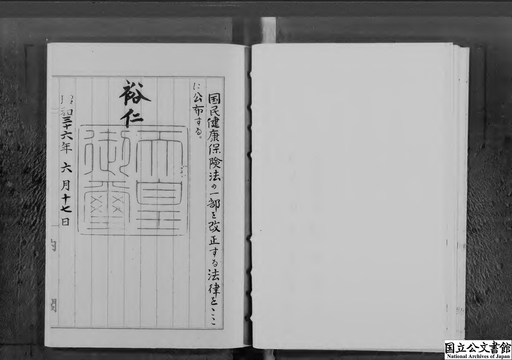 国民健康保険法の一部を改正する法律をここ
に公布する。
裕仁
天皇
御璽
昭和三十六年六月十七日
国立公文書館
National Archives of Japan